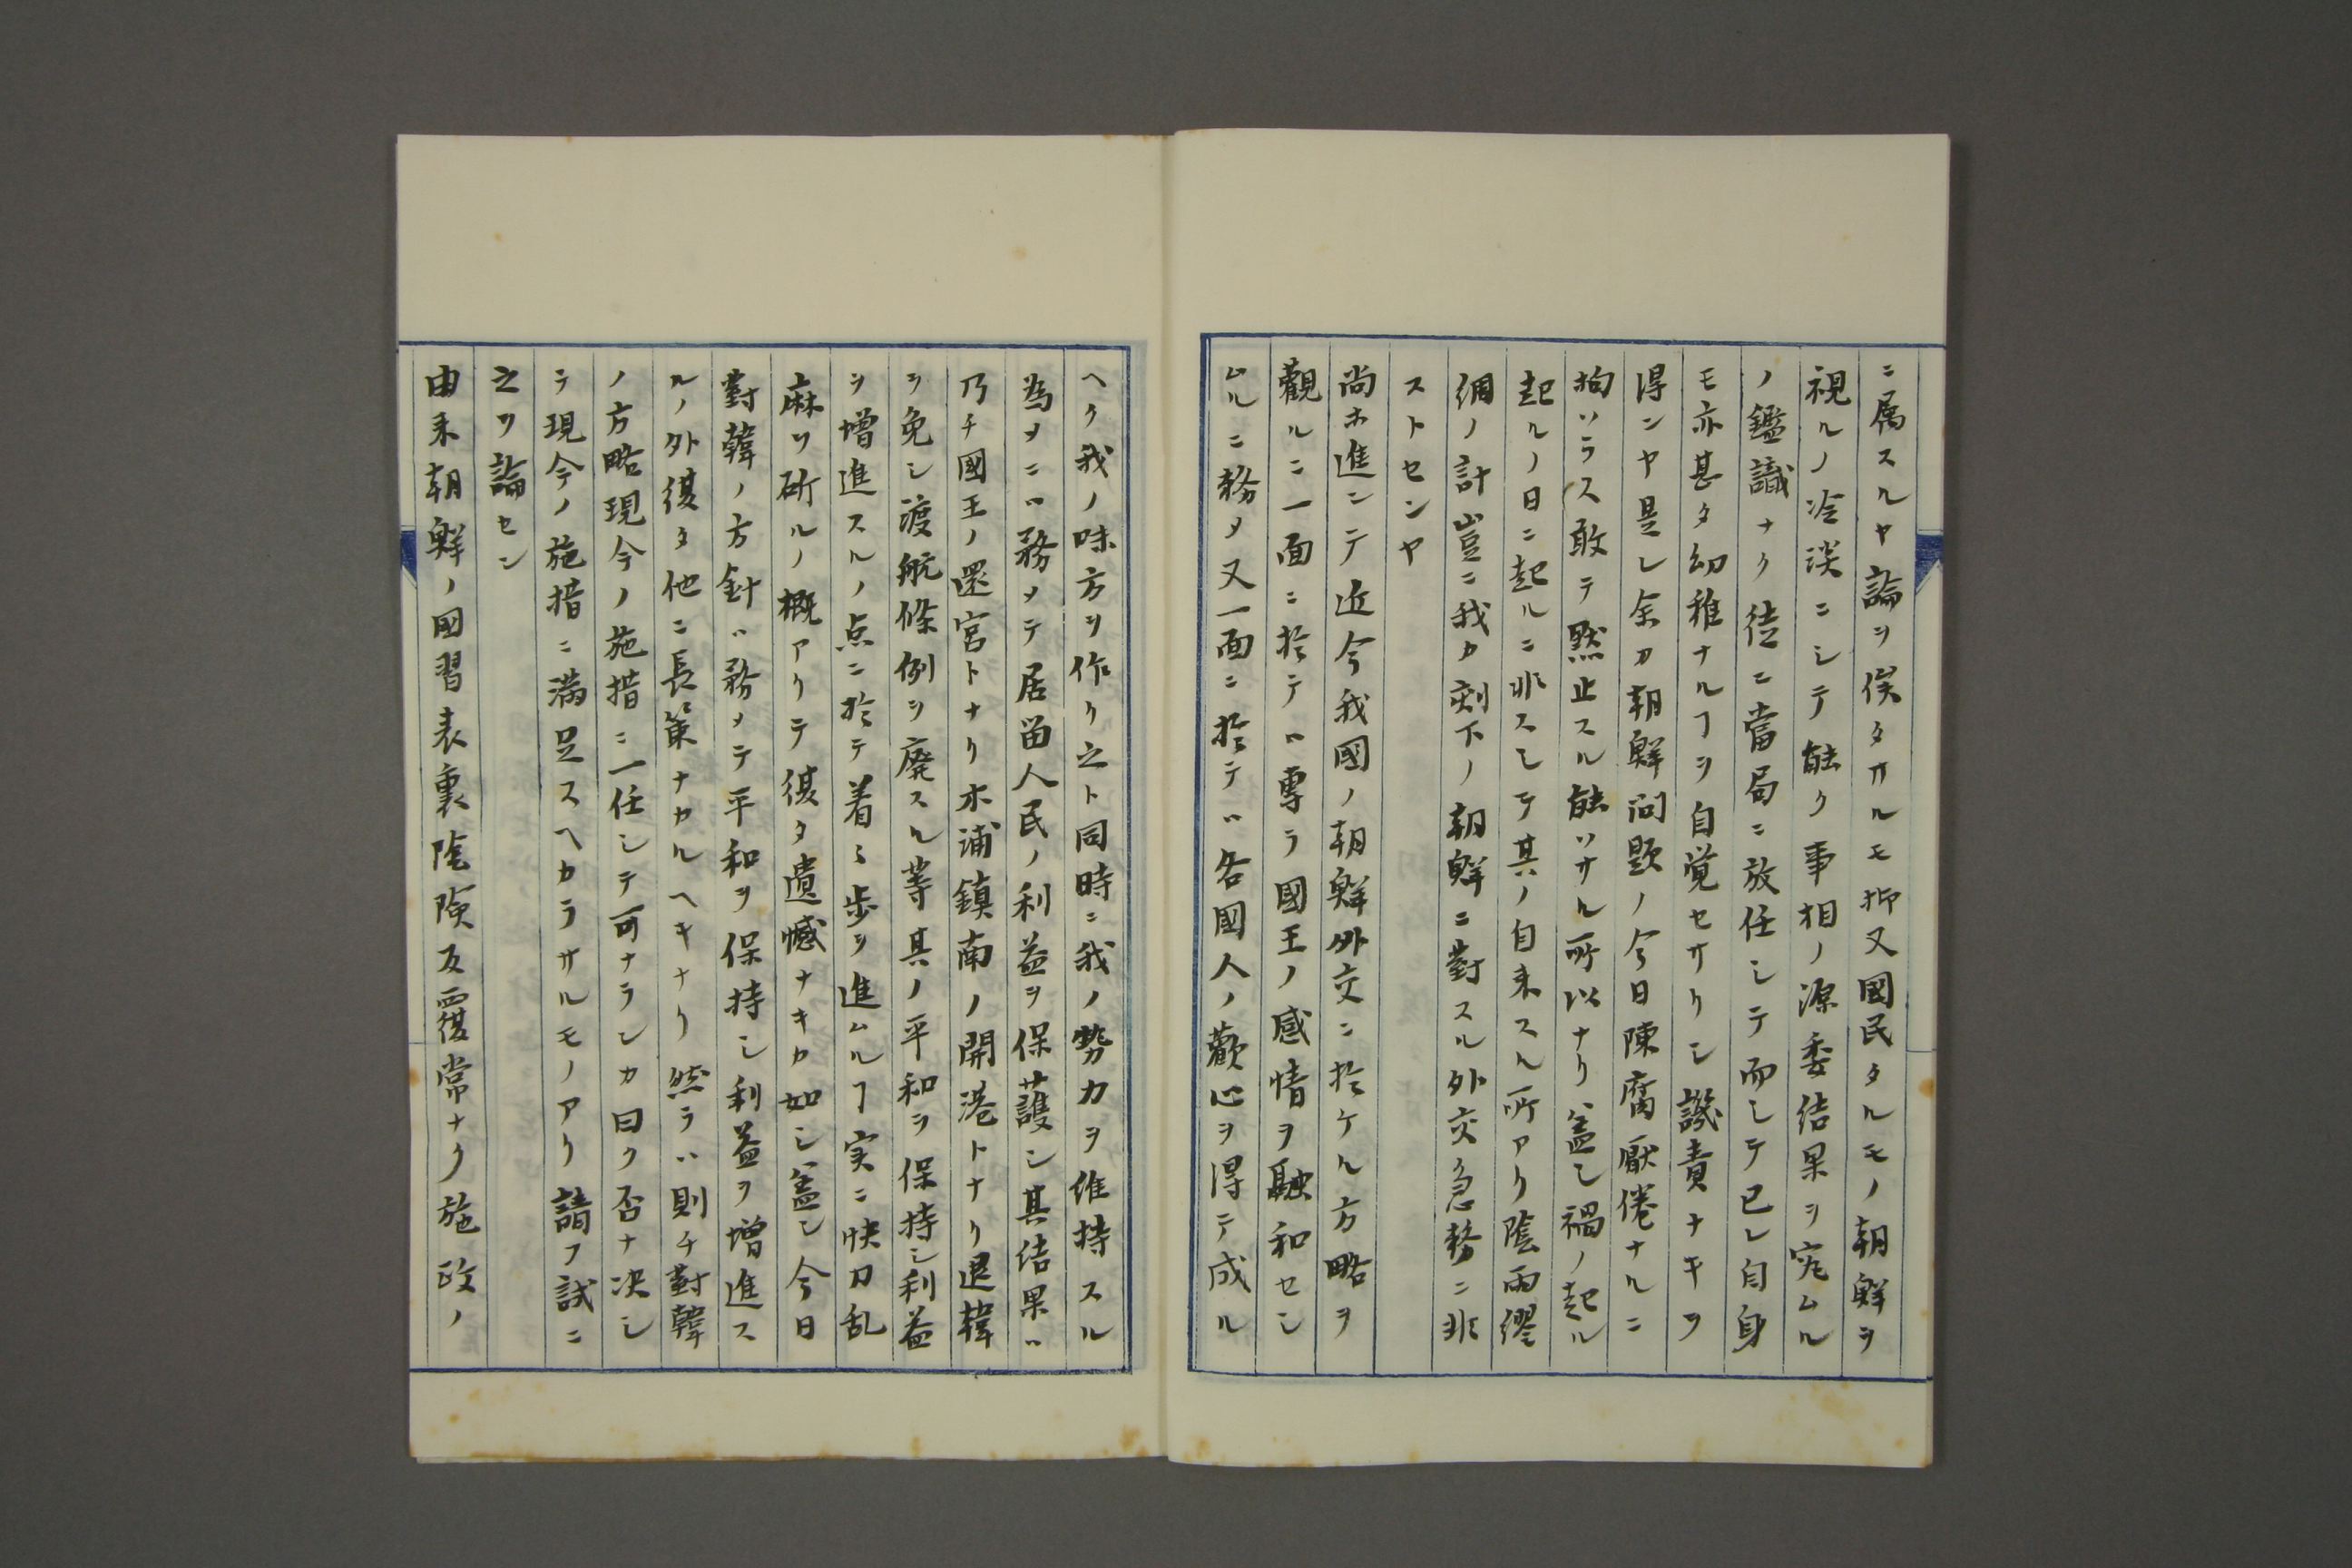 ニ属スルヤ論ヲ俟タサルモ抑又國民タルモノ朝鮮ヲ
視ルノ冷淡ニシテ能ク事相ノ源委結果ヲ究ムル
ノ鑑識ナク徒ニ當局ニ放任シテ而シテ已レ自身
モ亦甚タ幼稚ナルヿヲ自覚セサリシ譏責ナキヲ
得ンヤ是レ余カ朝鮮问題ノ今日陳腐厭倦ナルニ
拘ハラス敢テ黙止スル能ハサル所以ナリ蓋シ禍ノ起ル
起ルノ日ニ起ルニ非スシテ其ノ自来スル所アリ陰雨繆
綢ノ計豈ニ我カ刻下ノ朝鮮ニ對スル外交急務ニ非
ストセンヤ
尚ホ進ンテ近今我國ノ朝鮮外交ニ於ケル方略ヲ
觀ルニ一面ニ於テハ專ラ國王ノ感情ヲ融和セシ
ムルニ務メ又一面ニ於テハ各國人ノ歡心ヲ得テ成ル
ヘク我ノ味方ヲ作リ之ト同時ニ我ノ勢力ヲ維持スル
為メニハ務メテ居留人民ノ利益ヲ保護シ其結果ハ
乃チ國王ノ還宮トナリ木浦鎮南ノ開港トナリ退韓
ヲ免シ渡航條例ヲ廃スル等其ノ平和ヲ保持シ利益
ヲ増進スルノ点ニ於テ着々歩ヲ進ムルヿ実ニ快刀乱
麻ヲ斫ルノ概アリテ復タ遺憾ナキカ如シ蓋シ今日
對韓ノ方針ハ務メテ平和ヲ保持シ利益ヲ増進ス
ルノ外復タ他ニ長策ナカルヘキナリ然ラハ則チ對韓
ノ方略現今ノ施措ニ一任シテ可ナランカ曰ク否ナ决シ
テ現今ノ施措ニ満足スヘカラサルモノアリ請フ試ニ
之ヲ論セン
由来朝鮮ノ國習表裏陰険反覆常ナク施政ノ